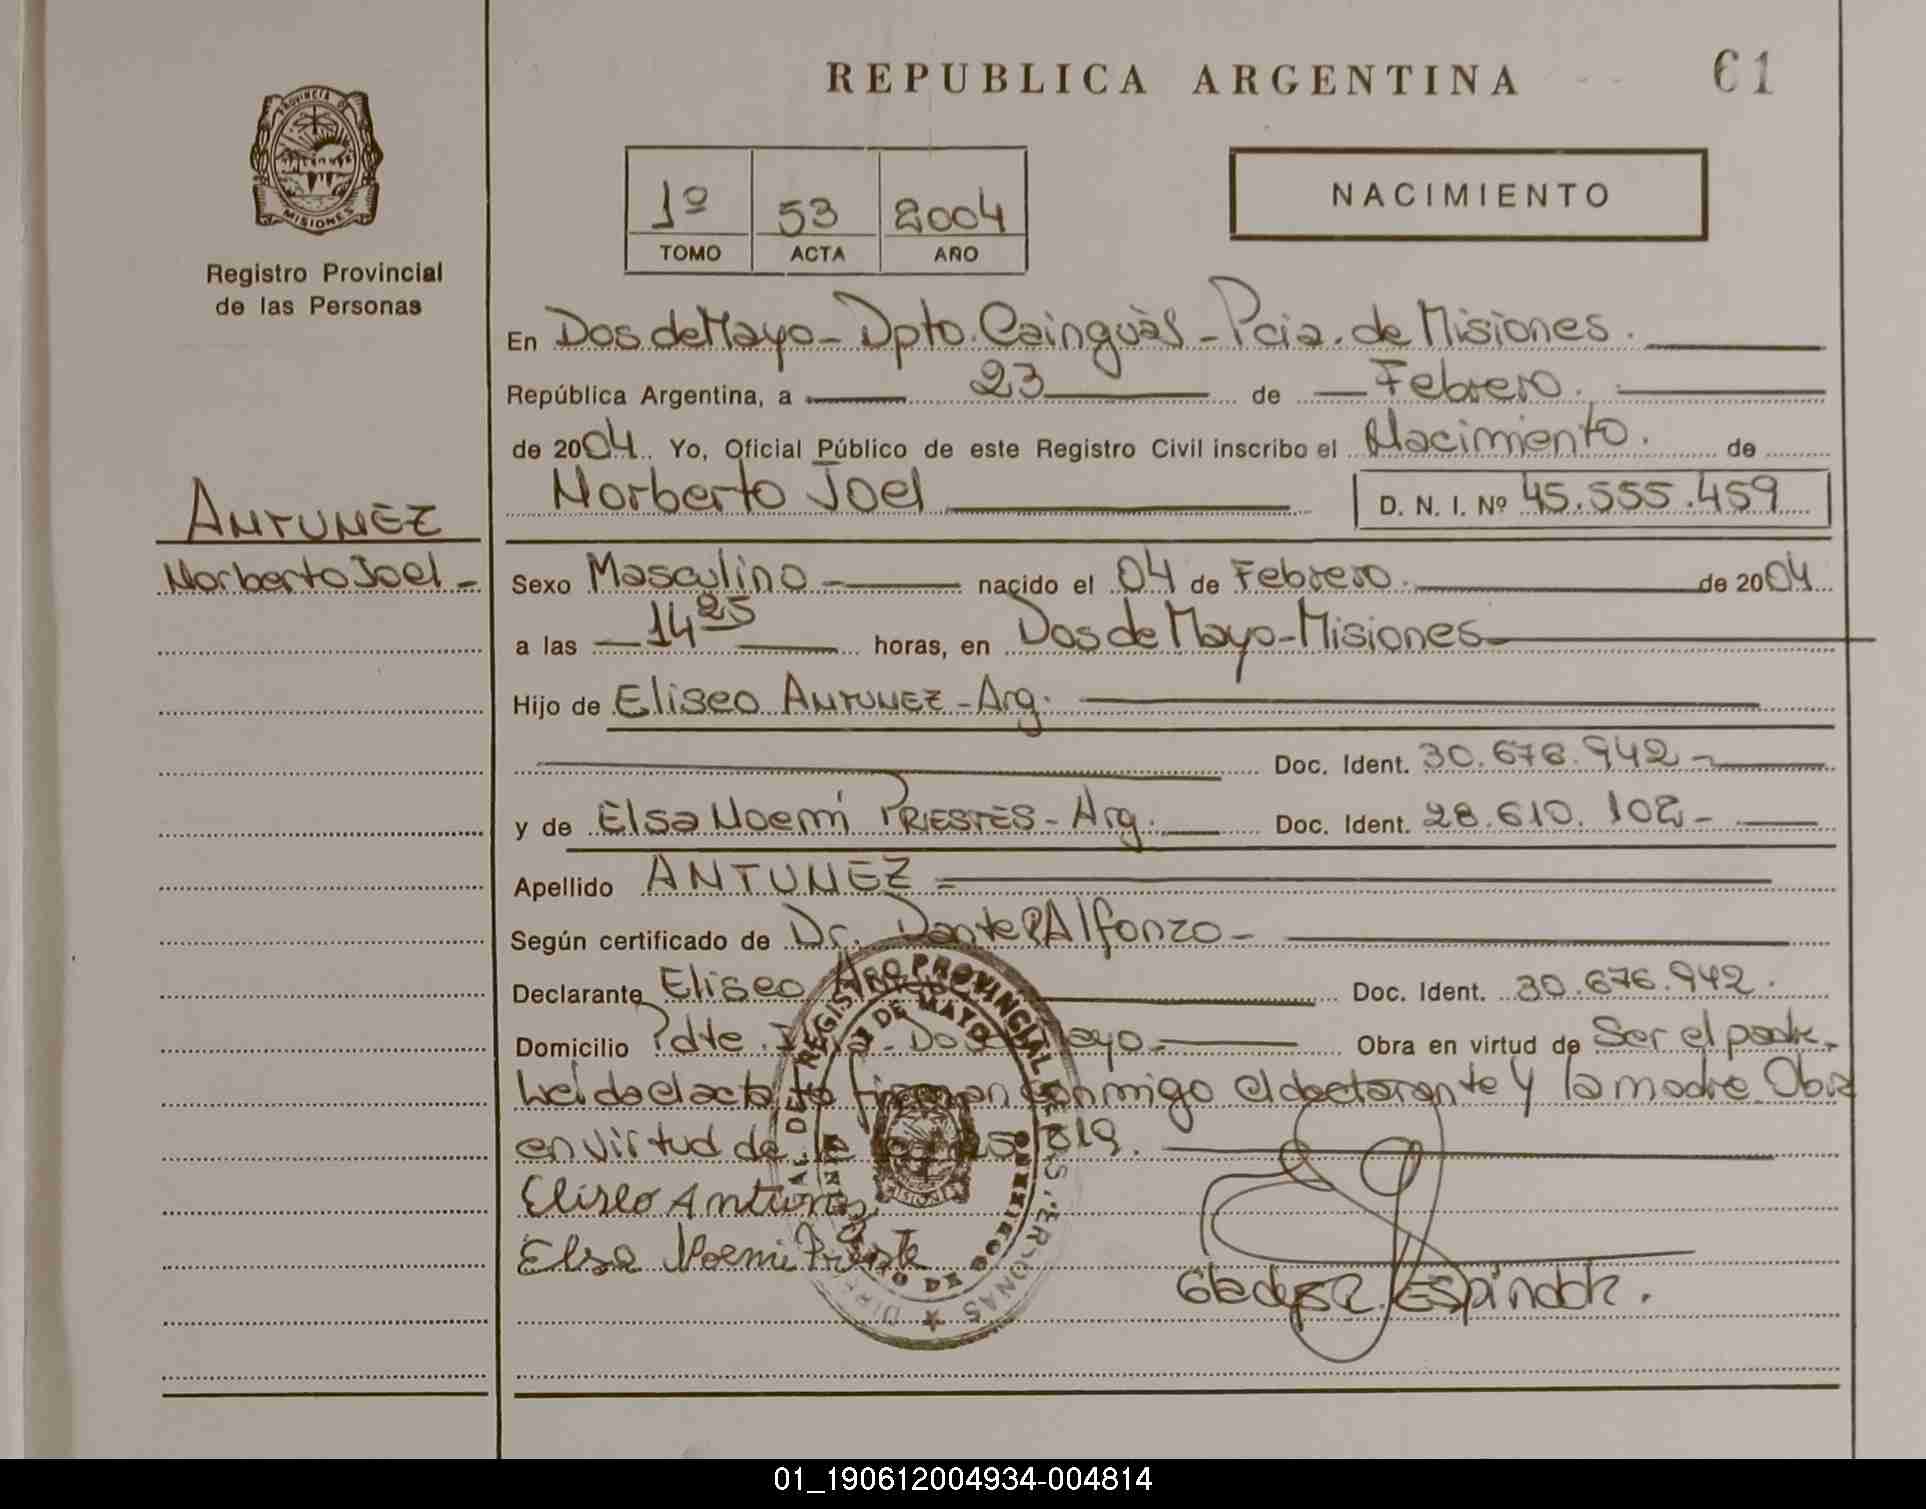 REPUBLICA ARGENTINA
61
PROVINCIA D
MISIONES
Registro Provincial
de las Personas
1º 53 2004
TOMO ACTA AÑO
NACIMIENTO
En Dos de Mayo - Dpto. Cainguàs - Pcia. de Misiones.
República Argentina, a 23 de Febrero.
de 2004. Yo, Oficial Público de este Registro Civil inscribo el Nacimiento. de
Norberto Joel D. N. I. Nº 45.555.459
ANTUNEZ
Norberto Joel -
Sexo Masculino - nacido el 04 de Febrero. de 2004
a las 14 25 horas, en Dos de Mayo - Misiones
Hijo de Eliseo ANTUNEZ - Arg.
Doc. Ident. 30.676.942 -
y de Elsa Noemí PRIESTES - Arg. Doc. Ident. 28.610.102 -
Apellido ANTUNEZ =
Según certificado de Dr. Alfonzo -
Declarante Eliseo Doc. Ident. 30.676.942.
Domicilio Pdte. Obra en virtud de Ser el padre.
Leida el acta la firman conmigo el declarante y la madre. Obra
en virtud de
Eliseo Antunez
Elsa Noemi Prieste
Gladys R. Espíndola.
REGISTRO PROVINCIAL DE LAS PERSONAS
DOS DE MAYO
MISIONES
01_190612004934-004814